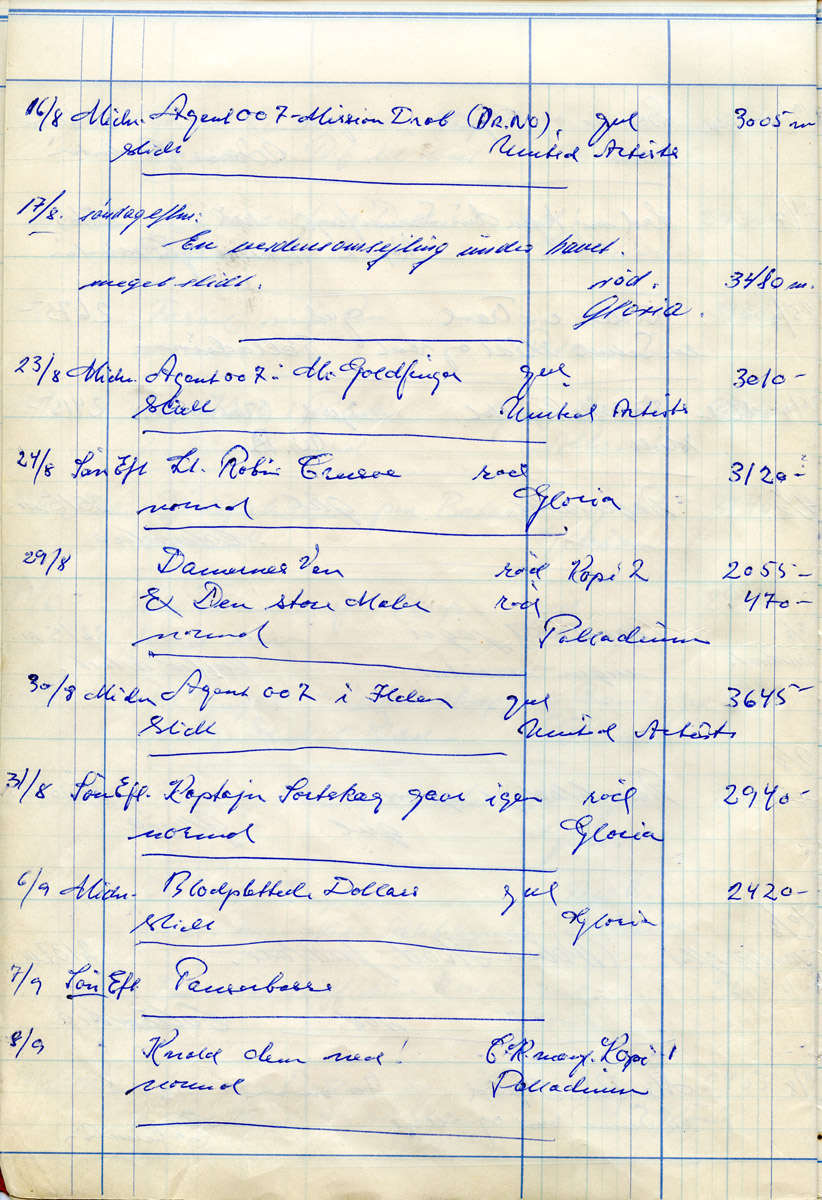 16/8 Midn. Agent 007-Mission Drab (DR.NO), gul 3005 m
slidt United Artists
17/8. søndagefm:
En verdensomsejling under havet.
meget slidt. rød. 3480 m.
Gloria.
23/8 Midn. Agent 007 i Mi. Goldfinger gul 3010-
Slidt United Artists
24/8 Søn Eft Lt. Robin Crusoe rød 3120-
normal Gloria
29/8 Damernes Ven rød Kopi 2 2055-
& Den store Maler rød 470-
normal Palladium
30/8 Midn Agent 007 i Ilden gul 3645-
Slidt United Artists
31/8 Søn Eft. Kaptajn Sortskæg gaar igen rød 2940-
normal Gloria
6/9 Midn. Blodplettede Dollars gul 2420-
Slidt Gloria
7/9 Søn Eft Panserbasse
8/9 Knald dem ned! Kopi 1
normal Palladium